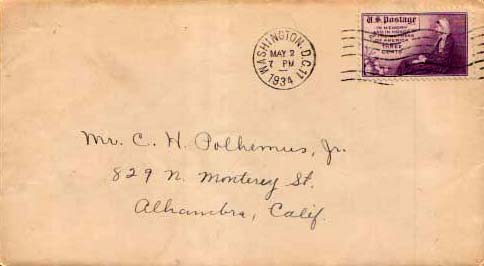 U.S. Postage
IN MEMORY
AND IN HONOR
OF THE MOTHERS
OF AMERICA
THREE
CENTS
WASHINGTON, D.C. 11
MAY 2
7 PM
1934
Mr. C. H. Polhemus, Jr.
829 N. Monterey St.
Alhambra, Calif.